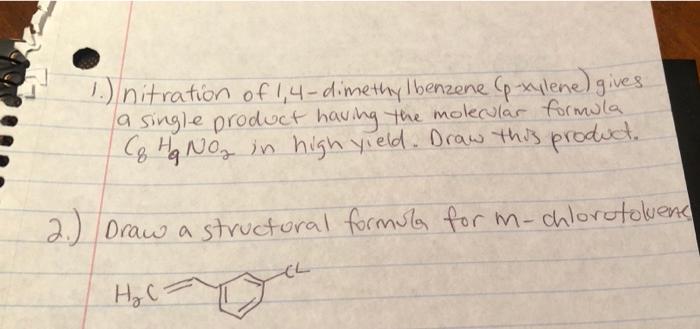 1.) nitration of 1,4-dimethylbenzene (p-xylene) gives
a single product having the molecular formula
C8 H9 NO2 in high yield. Draw this product.
2.) Draw a structural formula for m-chlorotoluene
H2C CL